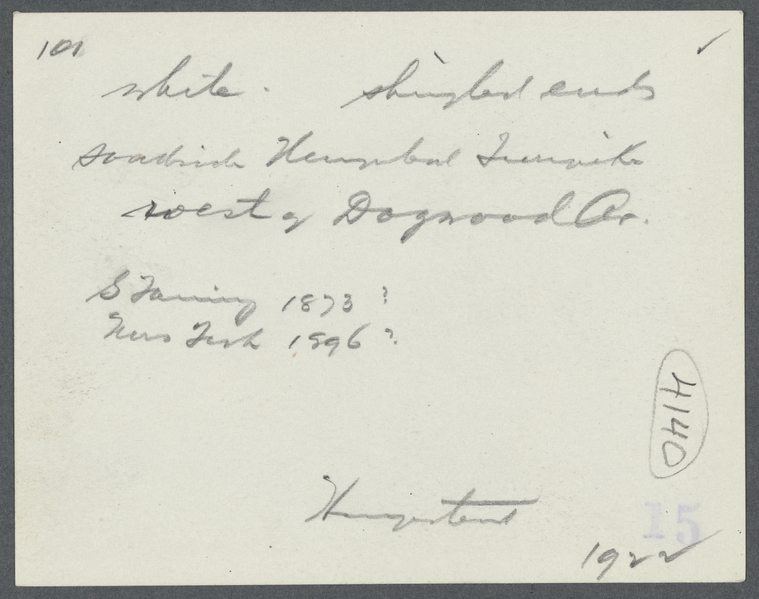 101 ✓
white. shingled ends
southside Hempstead Turnpike
west of Dogwood Av.
S 1873 ?
1896 ?
4140
Hempstead
15
1922